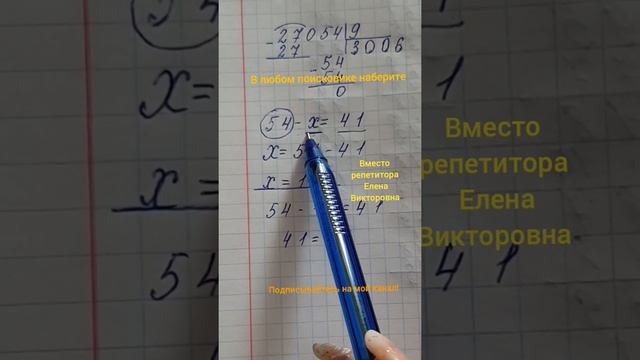 27054 | 9
- 27 | 3006
- 54
0
В любом поисковике наберите
54 - x = 41
x = 5 - 41
x = 1
54 - = 41
41 =
Вместо
репетитора
Елена
Викторовна
Подписывайтесь на мой канал!
54
x =
54
1
Вместо
репетитора
Елена
Викторовна
41